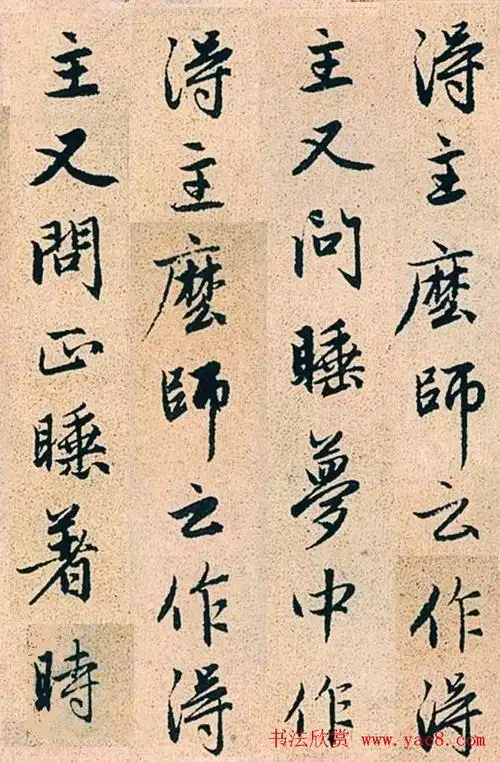 得主麼師云作得
主又問睡夢中作
得主麼師云作得
主又問正睡著時
书法欣赏 www.yac8.com